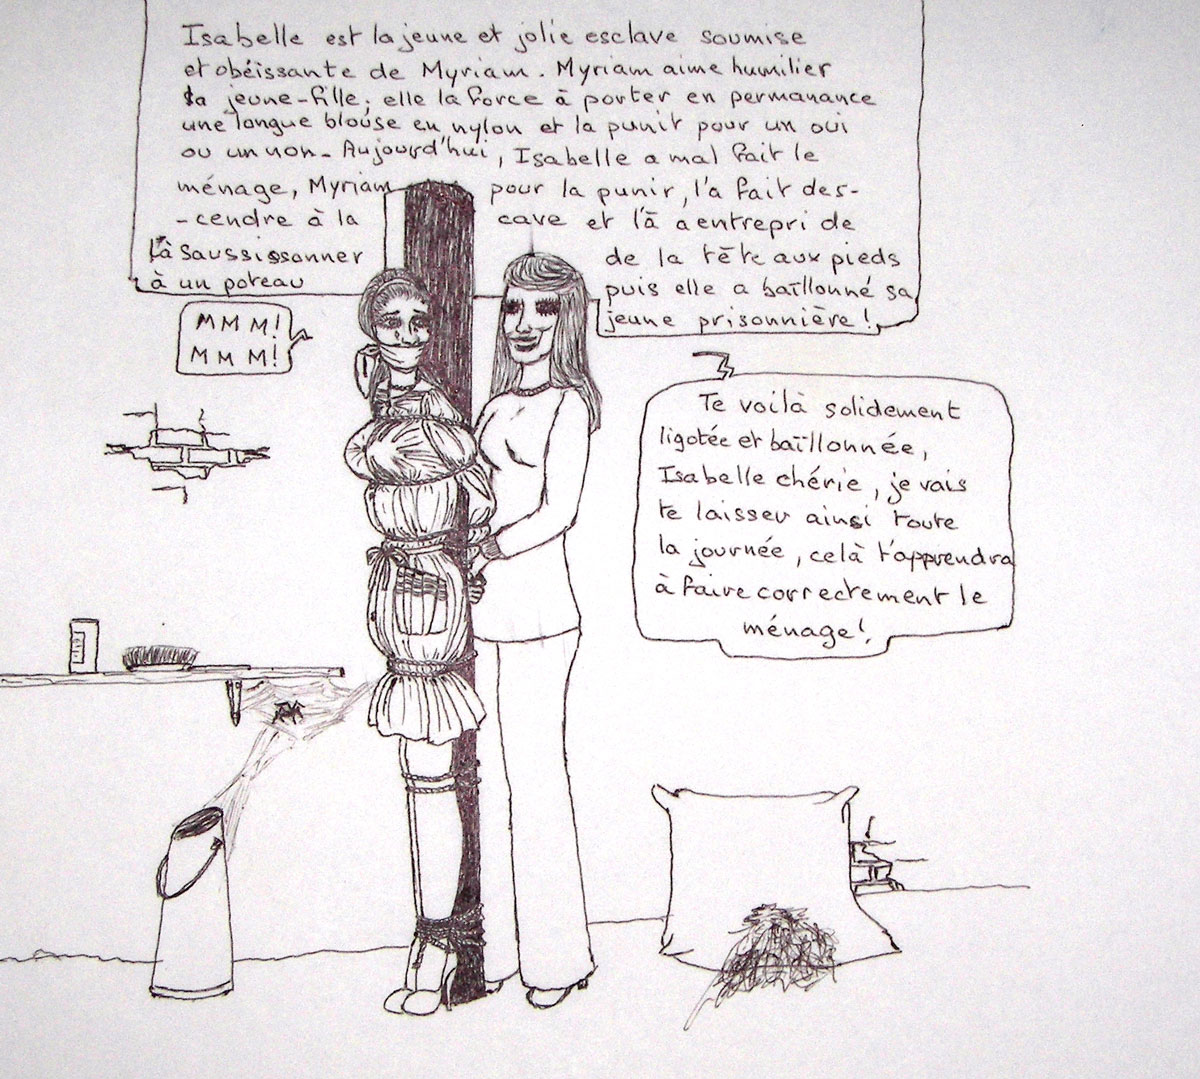 Isabelle est la jeune et jolie esclave soumise
et obéissante de Myriam. Myriam aime humilier
sa jeune-fille; elle la force à porter en permanance
une longue blouse en nylon et la punit pour un oui
ou un non- Aujourd'hui, Isabelle a mal fait le
ménage, Myriam pour la punir, l'a fait des-
-cendre à la cave et l'à a entrepri de
l'à saussissonner de la tête aux pieds
à un poteau puis elle a baîllonné sa
jeune prisonnière!
MMM!
MMM!
Te voilà solidement
ligotée et baîllonnée,
Isabelle chérie, je vais
te laisser ainsi toute
la journée, celà t'apprendra
à faire correctement le
ménage!